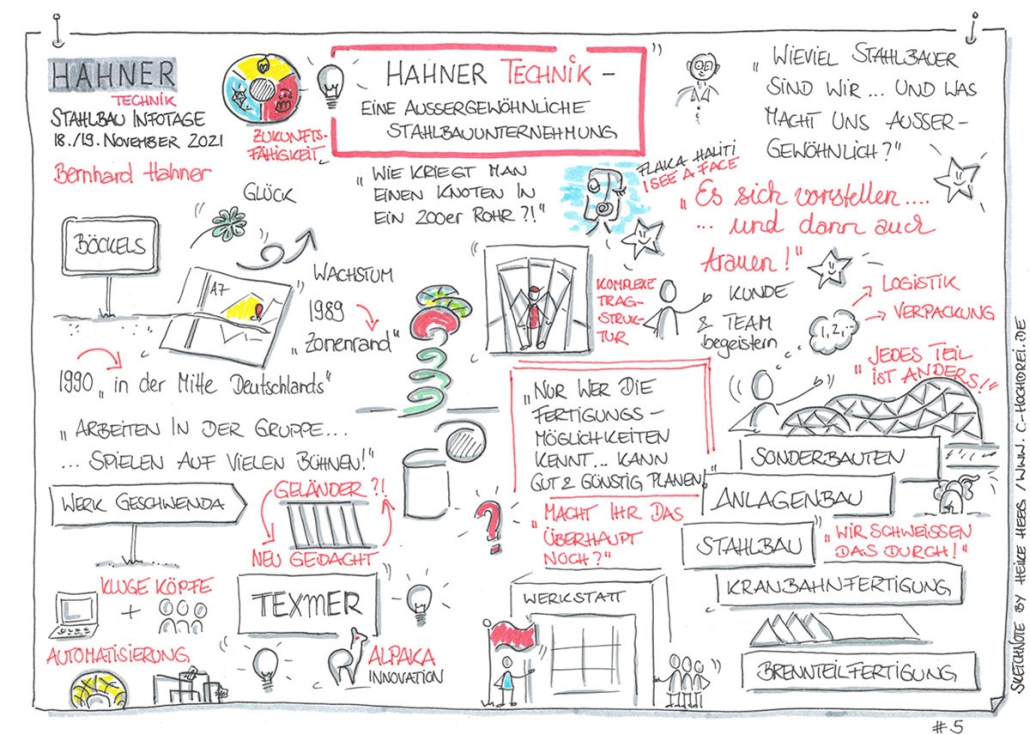 HAHNER
TECHNIK
STAHLBAU INFOTAGE
18./19. NOVEMBER 2021
Bernhard Hahner
ZUKUNFTS-
FÄHIGKEIT
HAHNER TECHNIK –
EINE AUSSERGEWÖHNLICHE
STAHLBAUUNTERNEHMUNG
„WIEVIEL STAHLBAUER
SIND WIR... UND WAS
MACHT UNS AUSSER-
GEWÖHNLICH?"
GLÜCK
„WIE KRIEGT MAN
EINEN KNOTEN IN
EIN 200er ROHR?!"
FLAKA HALITI
I SEE A FACE
„Es sich vorstellen....
... und dann auch
trauen!"
BÖCKELS
A7
WACHSTUM
1989
„Zonenrand"
1990 „in der Mitte Deutschlands"
KOMPLEXE
TRAG-
STRUK-
TUR
KUNDE
& TEAM
begeistern
1,2,..
LOGISTIK
VERPACKUNG
„JEDES TEIL
IST ANDERS!"
„ARBEITEN IN DER GRUPPE...
... SPIELEN AUF VIELEN BÜHNEN!"
„NUR WER DIE
FERTIGUNGS-
MÖGLICHKEITEN
KENNT... KANN
GUT & GÜNSTIG PLANEN"
SONDERBAUTEN
ANLAGENBAU
STAHLBAU
„WIR SCHWEISSEN
DAS DURCH!"
KRANBAHNFERTIGUNG
BRENNTEILFERTIGUNG
WERK GESCHWENDA
GELÄNDER?!
NEU GEDACHT
?
„MACHT IHR DAS
ÜBERHAUPT
NOCH?"
KLUGE KÖPFE
+
AUTOMATISIERUNG
TEXMER
ALPAKA
INNOVATION
WERKSTATT
SKETCHNOTE BY HEIKE HEEB / WWW.C-HOCHDREI.DE
#5